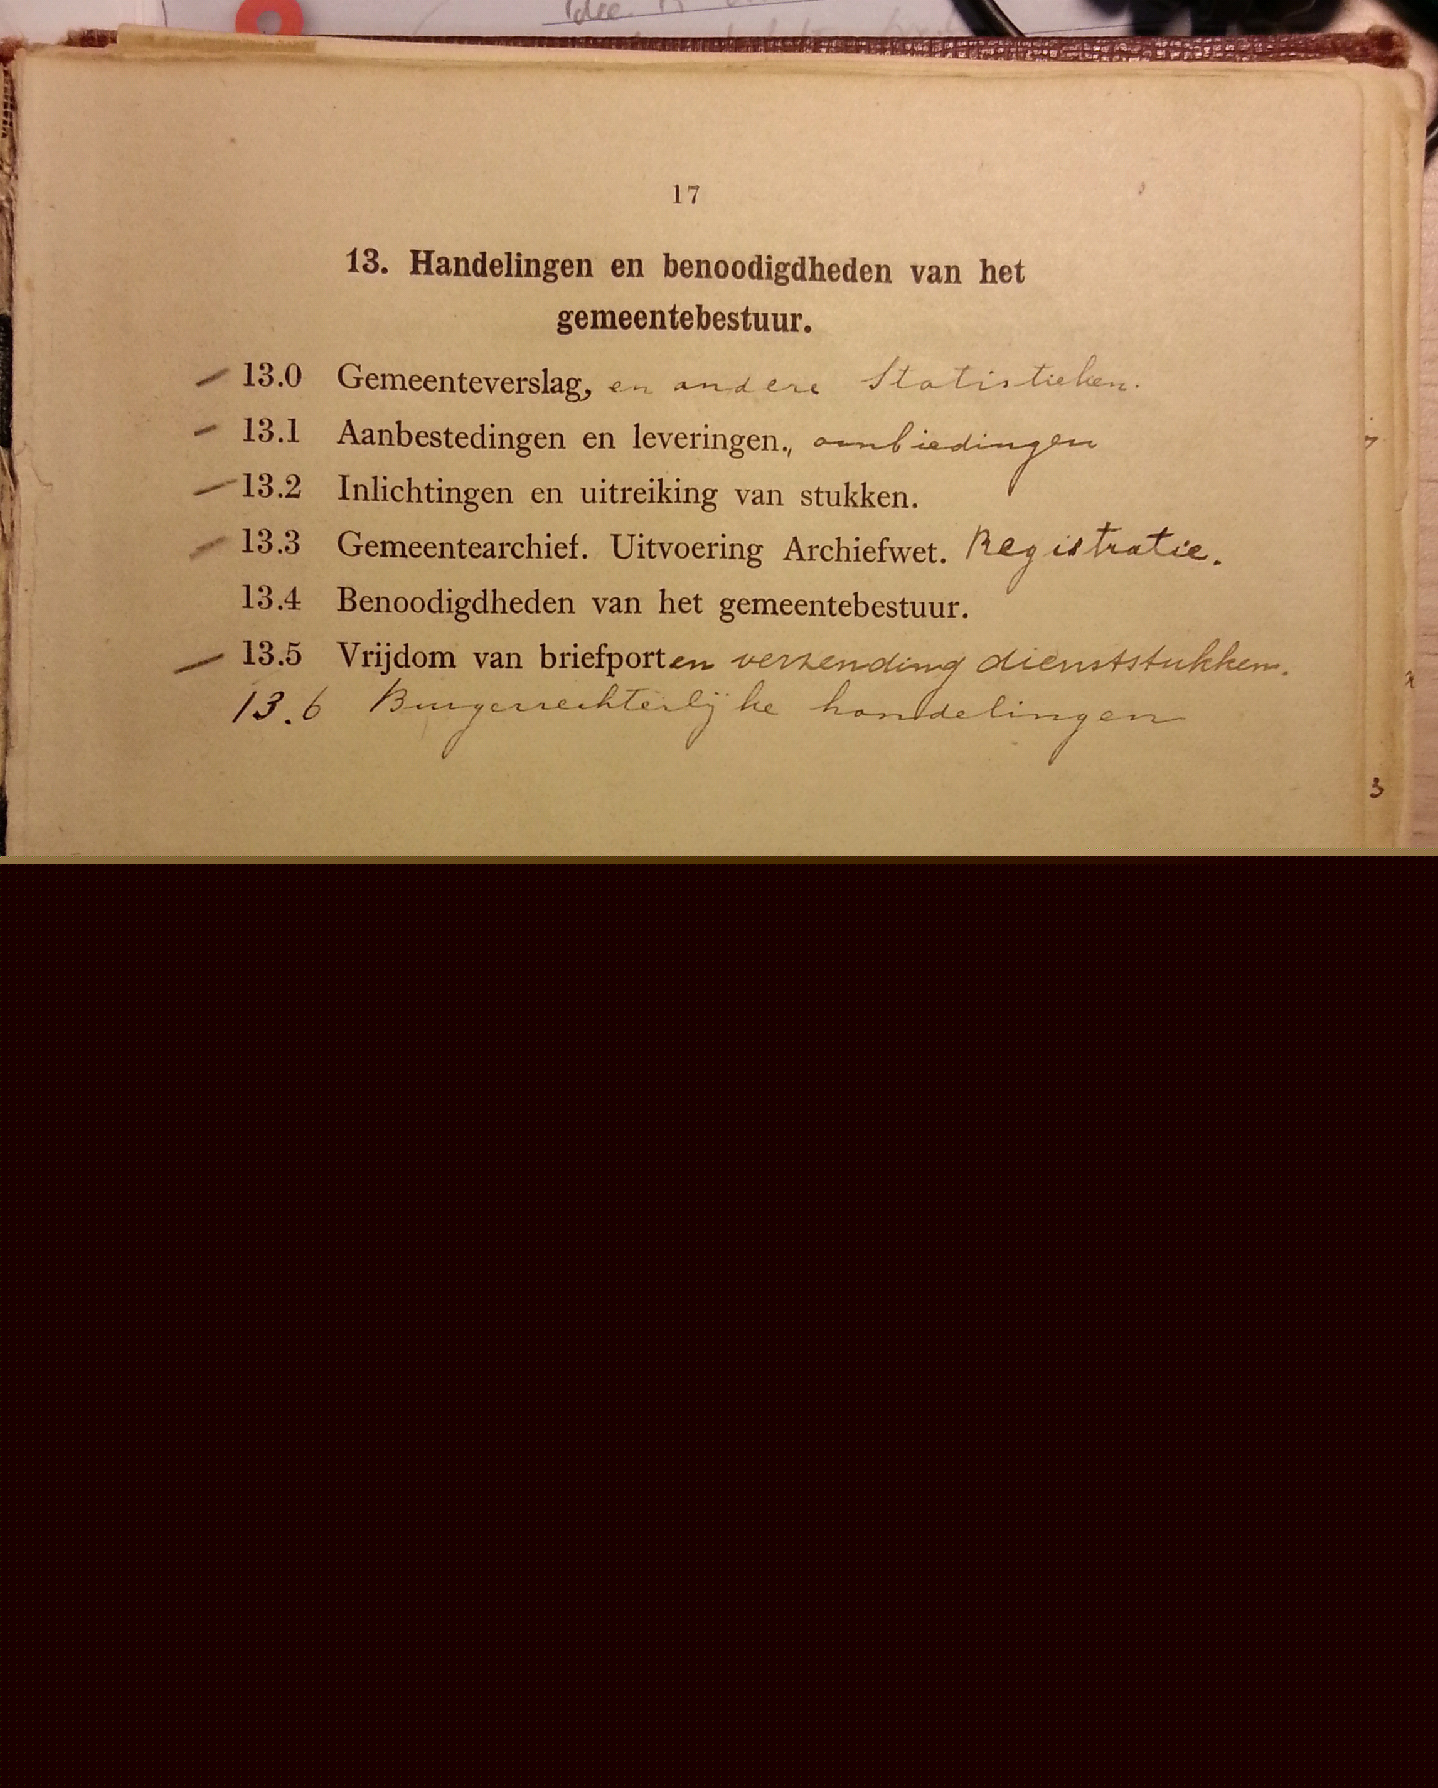 17
13. Handelingen en benoodigdheden van het
gemeentebestuur.
13.0 Gemeenteverslag, en andere Statistieken.
13.1 Aanbestedingen en leveringen., aanbiedingen
13.2 Inlichtingen en uitreiking van stukken.
13.3 Gemeentearchief. Uitvoering Archiefwet. Registratie.
13.4 Benoodigdheden van het gemeentebestuur.
13.5 Vrijdom van briefport en verzending dienststukken.
13.6 Burgerrechterlijke handelingen
3